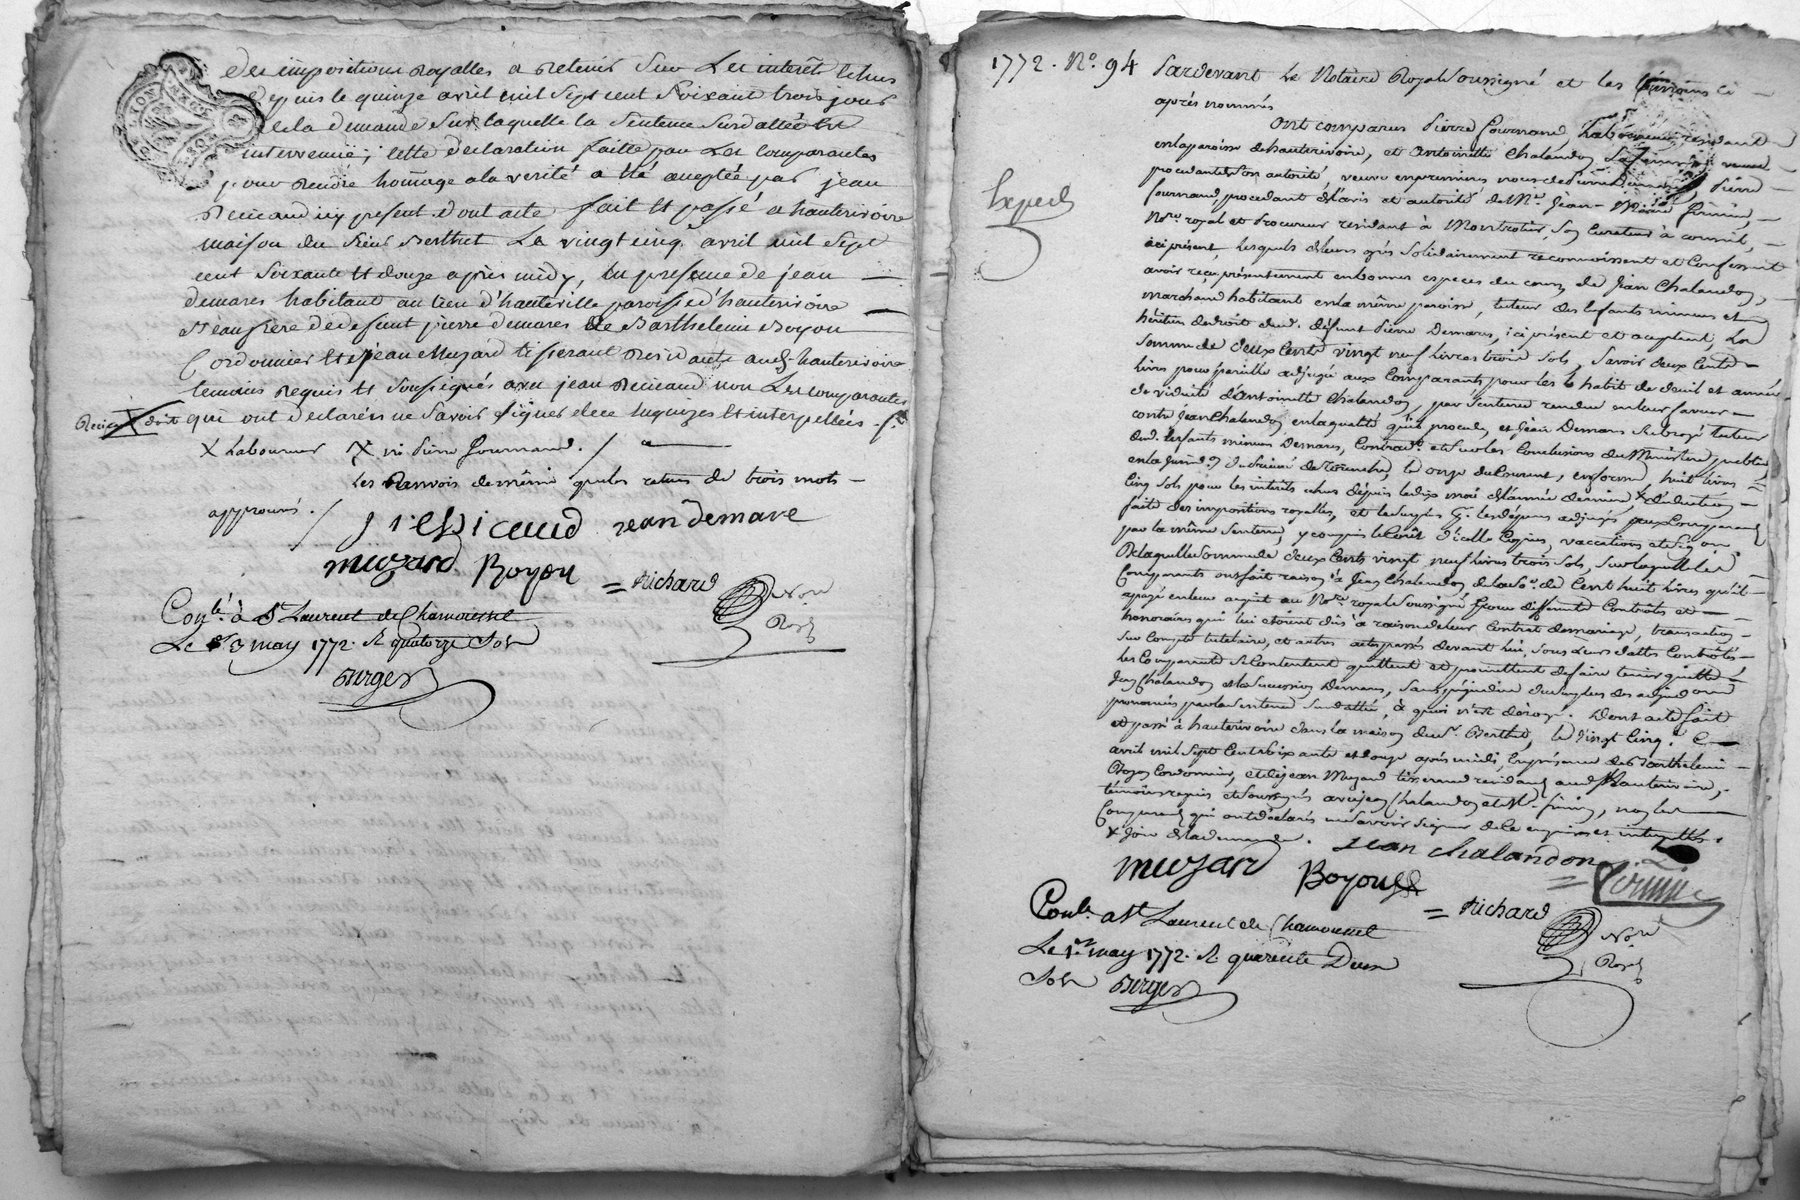 des impositions Royalles a Retenir Sur Les interêts Echus
depuis le quinze avril mil Sept cent Soixant trois jour
de la demande Sur laquelle la Sentence Susdattée Est
intervenüe; cette declaration faitte par Les Comparantes
pour Rendre hommage a la verité a été aceptée par jean
present dont acte fait Et passé a hauterivoire
maison du Sieur Berthet Le vingt cinq avril mil Sept
cent Soixante Et douze après midy, En presence de jean
demares habitant au lieu d'hauteville paroisse d'hauterivoire
frere de defunt pierre demares De Barthelemi Boyou
Cordonnier Et jean Muzard tisserant Residants aud. hauterivoire
temoins Requis Et Soussignés avec jean non Les comparantes
qui ont declarés ne Savoir Signer de ce Enquizes Et interpellées
X Laboureur X ni Pierre Gournand
Les Renvois de même que les ratures de trois mots
approuvés
jean Demare
muzard Boyou = Richard Nore
Royal
Conlé. à St Laurent de Chamousset
Le 3 may 1772. R. quatorze Sols
Berger
1772. No. 94 Pardevant Le Notaire Royal Soussigné et les témoins ci
après nommés
Ont comparus Pierre Gournand, Laboureur, résidant
en la paroisse de hauterivoire, et Antoinette Chalandon Sa femme
procedante de Son autorité, veuve en premieres noces de Pierre Demares, Pierre
Gournand, procedant de l'avis et autorité de Me. Jean-Marie
Nore. royal et Procureur residant à Montrotier, Son Curateur à conseil,
ici présent, Lesquels de leurs grés Solidairement reconnoissent et Confessent
avoir reçu présentement en bonnes especes du cours de Jean Chalandon,
marchand habitant en la même paroisse, tuteur des Enfants mineurs et
héritiers de droit dud. défunt Pierre Demares, ici présent et acceptant, La
Somme de deux Cents vingt neuf livres trois Sols, Savoir deux Cents
livres pour pareille adjugée aux Comparants pour les habit de deuil et année
de viduité d'Antoinette Chalandon, par Sentence rendue en leur faveur
contre Jean Chalandon, en la qualité qu'il procede, et Jean Demares Subrogé tuteur
dud. Enfants mineurs Demares, et sur les Conclusions du Ministere public
en la de le onze du Courant, en forme, huit livres
Cinq Sols pour les interêts echus dépuis le dix mai de l'année derniere X déduction
faite des impositions royalles, et le Surplus pr. les dépens adjugés aux Comparants
par la même Sentence, y compris le Coût d'icelle Copies, vaccations et Signon
De laquelle Somme de deux Cents vingt neuf livres trois Sols, Sur laquelle Les
Comparants ont fait raison à Jean Chalandon de la So. de Cent huit livres qu'il
a payé en leur acquit au Nore. royal Soussigné pour différents Contrôles et
honoraires qui lui étoient dûs à raison de leur Contrat de mariage, transaction
Sur Compte tutelaire, et autres actes passés devant lui, Sous Leurs dattes Contrôlés
Les Comparants Se Contentent quittent et promettent de faire tenir quitte
Jean Chalandon et la Succession Demares, Sans préjudice du Surplus des adjudons
prononcés par la Sentence Susdattée, à quoi n'est dérogé. Dont acte fait
et passé à hauterivoire dans la maison du Sr. Berthet, le vingt Cinq
avril mil Sept Cent Soixante et douze après midi, En présence de Barthelemi
Boyou Cordonnier, et de jean Muzard tisserand residants aud. hauterivoire,
témoins requis et Soussignés avec jean Chalandon et Me. non les
Comparants qui ont déclarés ne Savoir Signer de ce enquis et interpellés.
X Jour de la demande. jean chalandon
muzard Boyou
= Richard Nore
Royal
Conlé. a St Laurent de Chamousset
Le 1er. may 1772. R. quarente Deux
Sols Berger